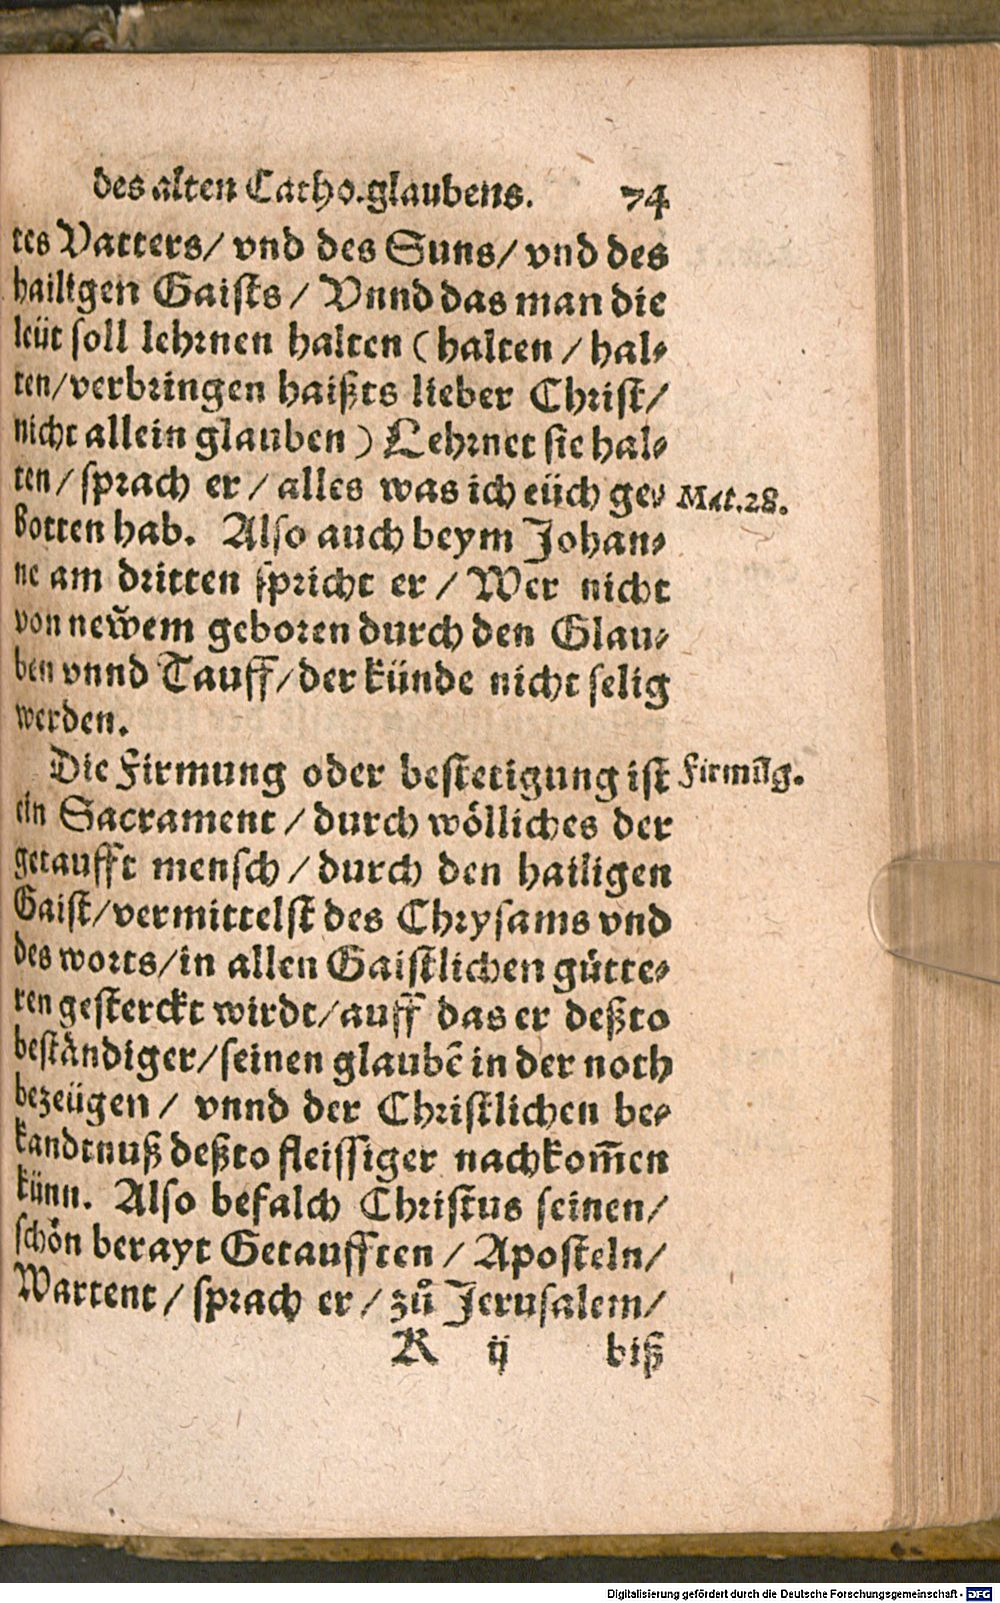 des alten Catho.glaubens. 74
tes Vatters/ vnd des Suns/ vnd des
hailigen Gaists / Vnnd das man die
leüt soll lehrnen halten ( halten / hal⸗
ten/verbringen haißts lieber Christ/
nicht allein glauben ) Lehrnet sie hal⸗
ten / sprach er / alles was ich eüch ge⸗
Mat.28.
botten hab. Also auch beym Johan⸗
ne am dritten spricht er / Wer nicht
von newem geboren durch den Glau⸗
ben vnnd Tauff/der künde nicht selig
werden.
Die Firmung oder bestetigung ist
Firmūg.
ein Sacrament / durch wölliches der
getaufft mensch / durch den hailigen
Gaist/vermittelst des Chrysams vnd
des worts/in allen Gaistlichen gütte⸗
ren gesterckt wirdt/auff das er deßto
beständiger/seinen glaubē in der noth
bezeügen / vnnd der Christlichen be⸗
kandtnuß deßto fleissiger nachkom̄en
künn. Also befalch Christus seinen/
schon berayt Getaufften / Aposteln/
Wartent / sprach er / zů Jerusalem/
K ij biß
Digitalisierung gefördert durch die Deutsche Forschungsgemeinschaft - DFG